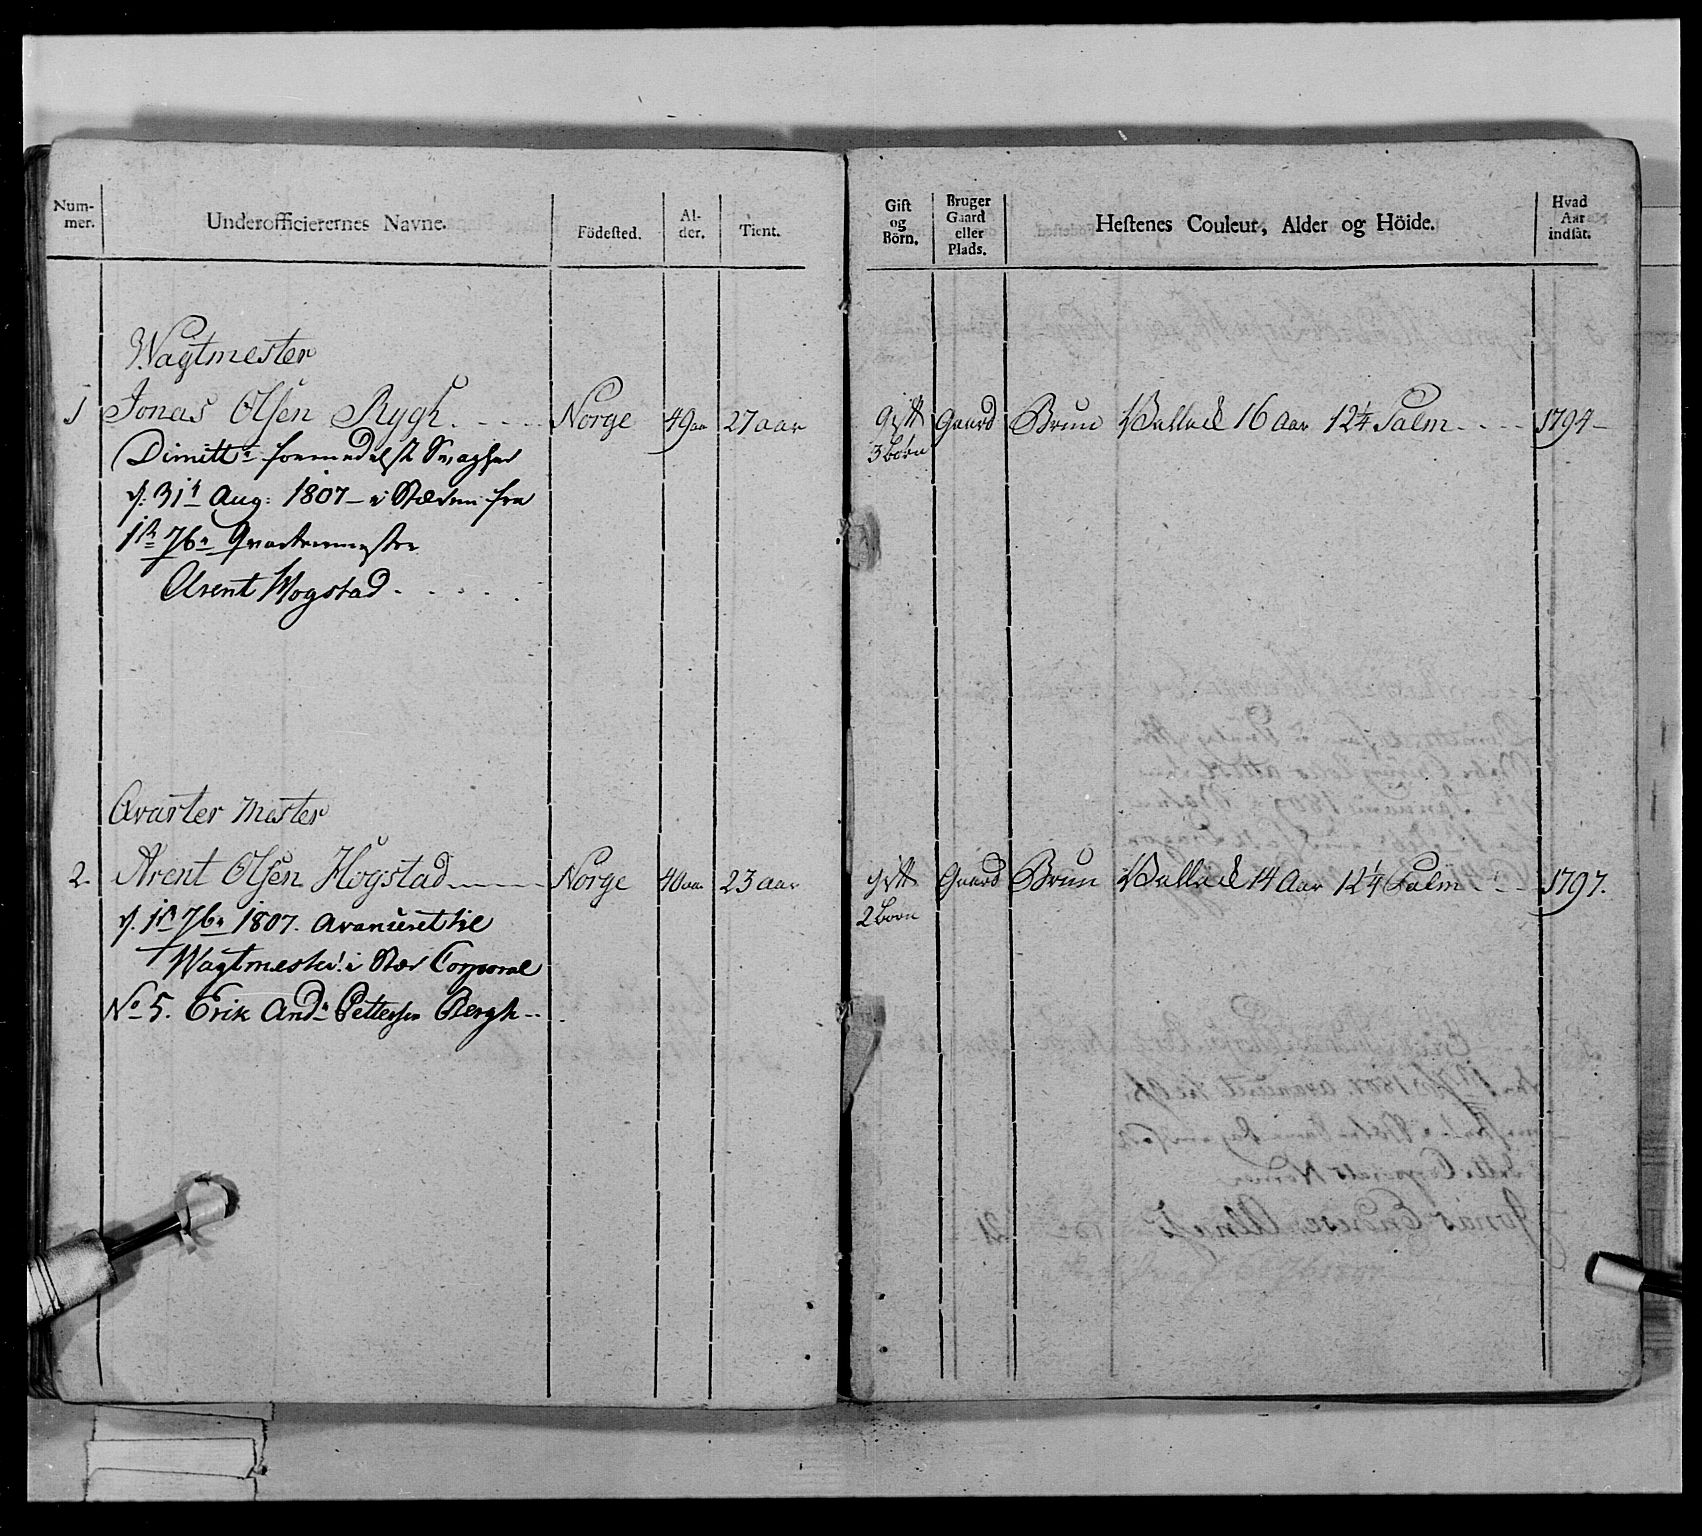 Num-
mer.
Underofficierernes Navne.
Födested.
Al-
der.
Tient.
Gift
og
Börn.
Bruger
Gaard
eller
Plads.
Hestenes Couleur, Alder og Höide.
Hvad
Aar
indsat.
Wagtmester
1 Jonas Olsen Rygh. Norge 49 aar 27 aar Gift Gaard Brun Vallack 16 Aar 12¼ Palm 1794
3 Börn
Dimitt: formedelst Svaghed
d: 31t Aug: 1807 - i Stæden fra
1st 7br Qvartermester
Arent Hogstad
Qvarter Mester
2. Arent Olsen Hogstad Norge 40 aar 23 aar gift Gaard Brun Vallack 14 Aar 12¼ Palm 1797.
2 Born
d. 1st 7br 1807. avanceret til
Wagtmester: i Stæd Corporal
No 5. Erik And: Pettersen Bergh